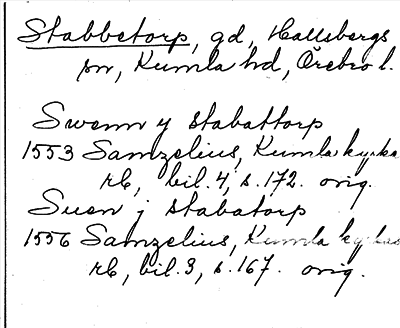 Stabbetorp, gd, Hallsbergs
sn, Kumla hd, Örebro l.
Swenn y stabattorp
1553 Samzelius, Kumla kyrka
rk, bil. 4, s. 172. orig.
Suen j stabatorp
1556 Samzelius, Kumla kyrkas
rk, bil. 9, s. 167. orig.